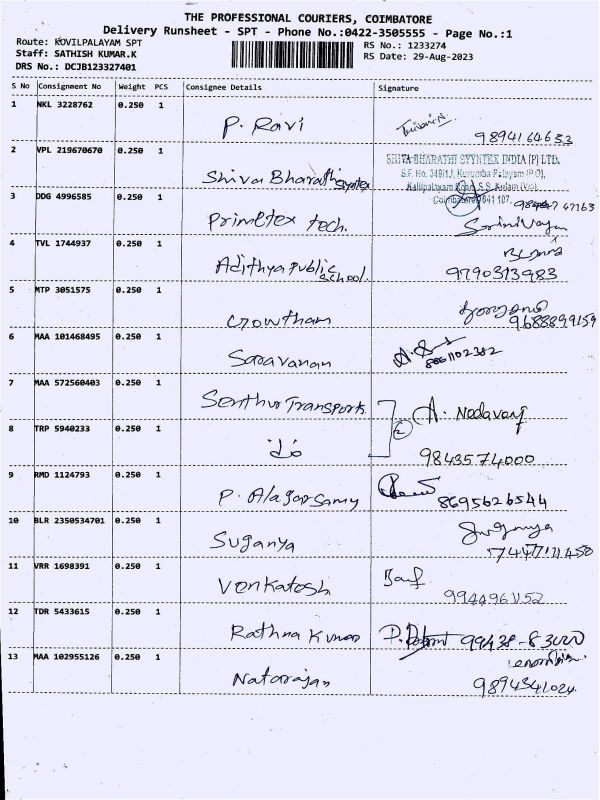 THE PROFESSIONAL COURIERS, COIMBATORE
Delivery Runsheet - SPT - Phone No.:0422-3505555 - Page No.:1
Route: KOVILPALAYAM SPT
Staff: SATHISH KUMAR.K
DRS No.: DCJB123327401
RS No.: 1233274
RS Date: 29-Aug-2023
S No Consignment No Weight PCS Consignee Details Signature
1 NKL 3228762 0.250 1
P. Ravi 9894164653
2 VPL 219670670 0.250 1
Shiva Bharathi
SHIVA BHARATHI SYYNTEX INDIA (P) LTD.
Coimbatore 641 107.
3 DDG 4996585 0.250 1
Primetex tech.
4 TVL 1744937 0.250 1
Adithya Public School. 9790313983
5 MTP 3051575 0.250 1
Gowtham 9688899159
6 MAA 101468495 0.250 1
Saravanan
7 MAA 572560403 0.250 1
Senthur Transports
8 TRP 5940233 0.250 1
do 9843574000
9 RMD 1124793 0.250 1
P. Alagarsamy 8695626544
10 BLR 2350534701 0.250 1
Suganya Suganya
11 VRR 1698391 0.250 1
Venkatesh
12 TDR 5433615 0.250 1
Rathna Kumar
13 MAA 102955126 0.250 1
Natarajan 9894341024